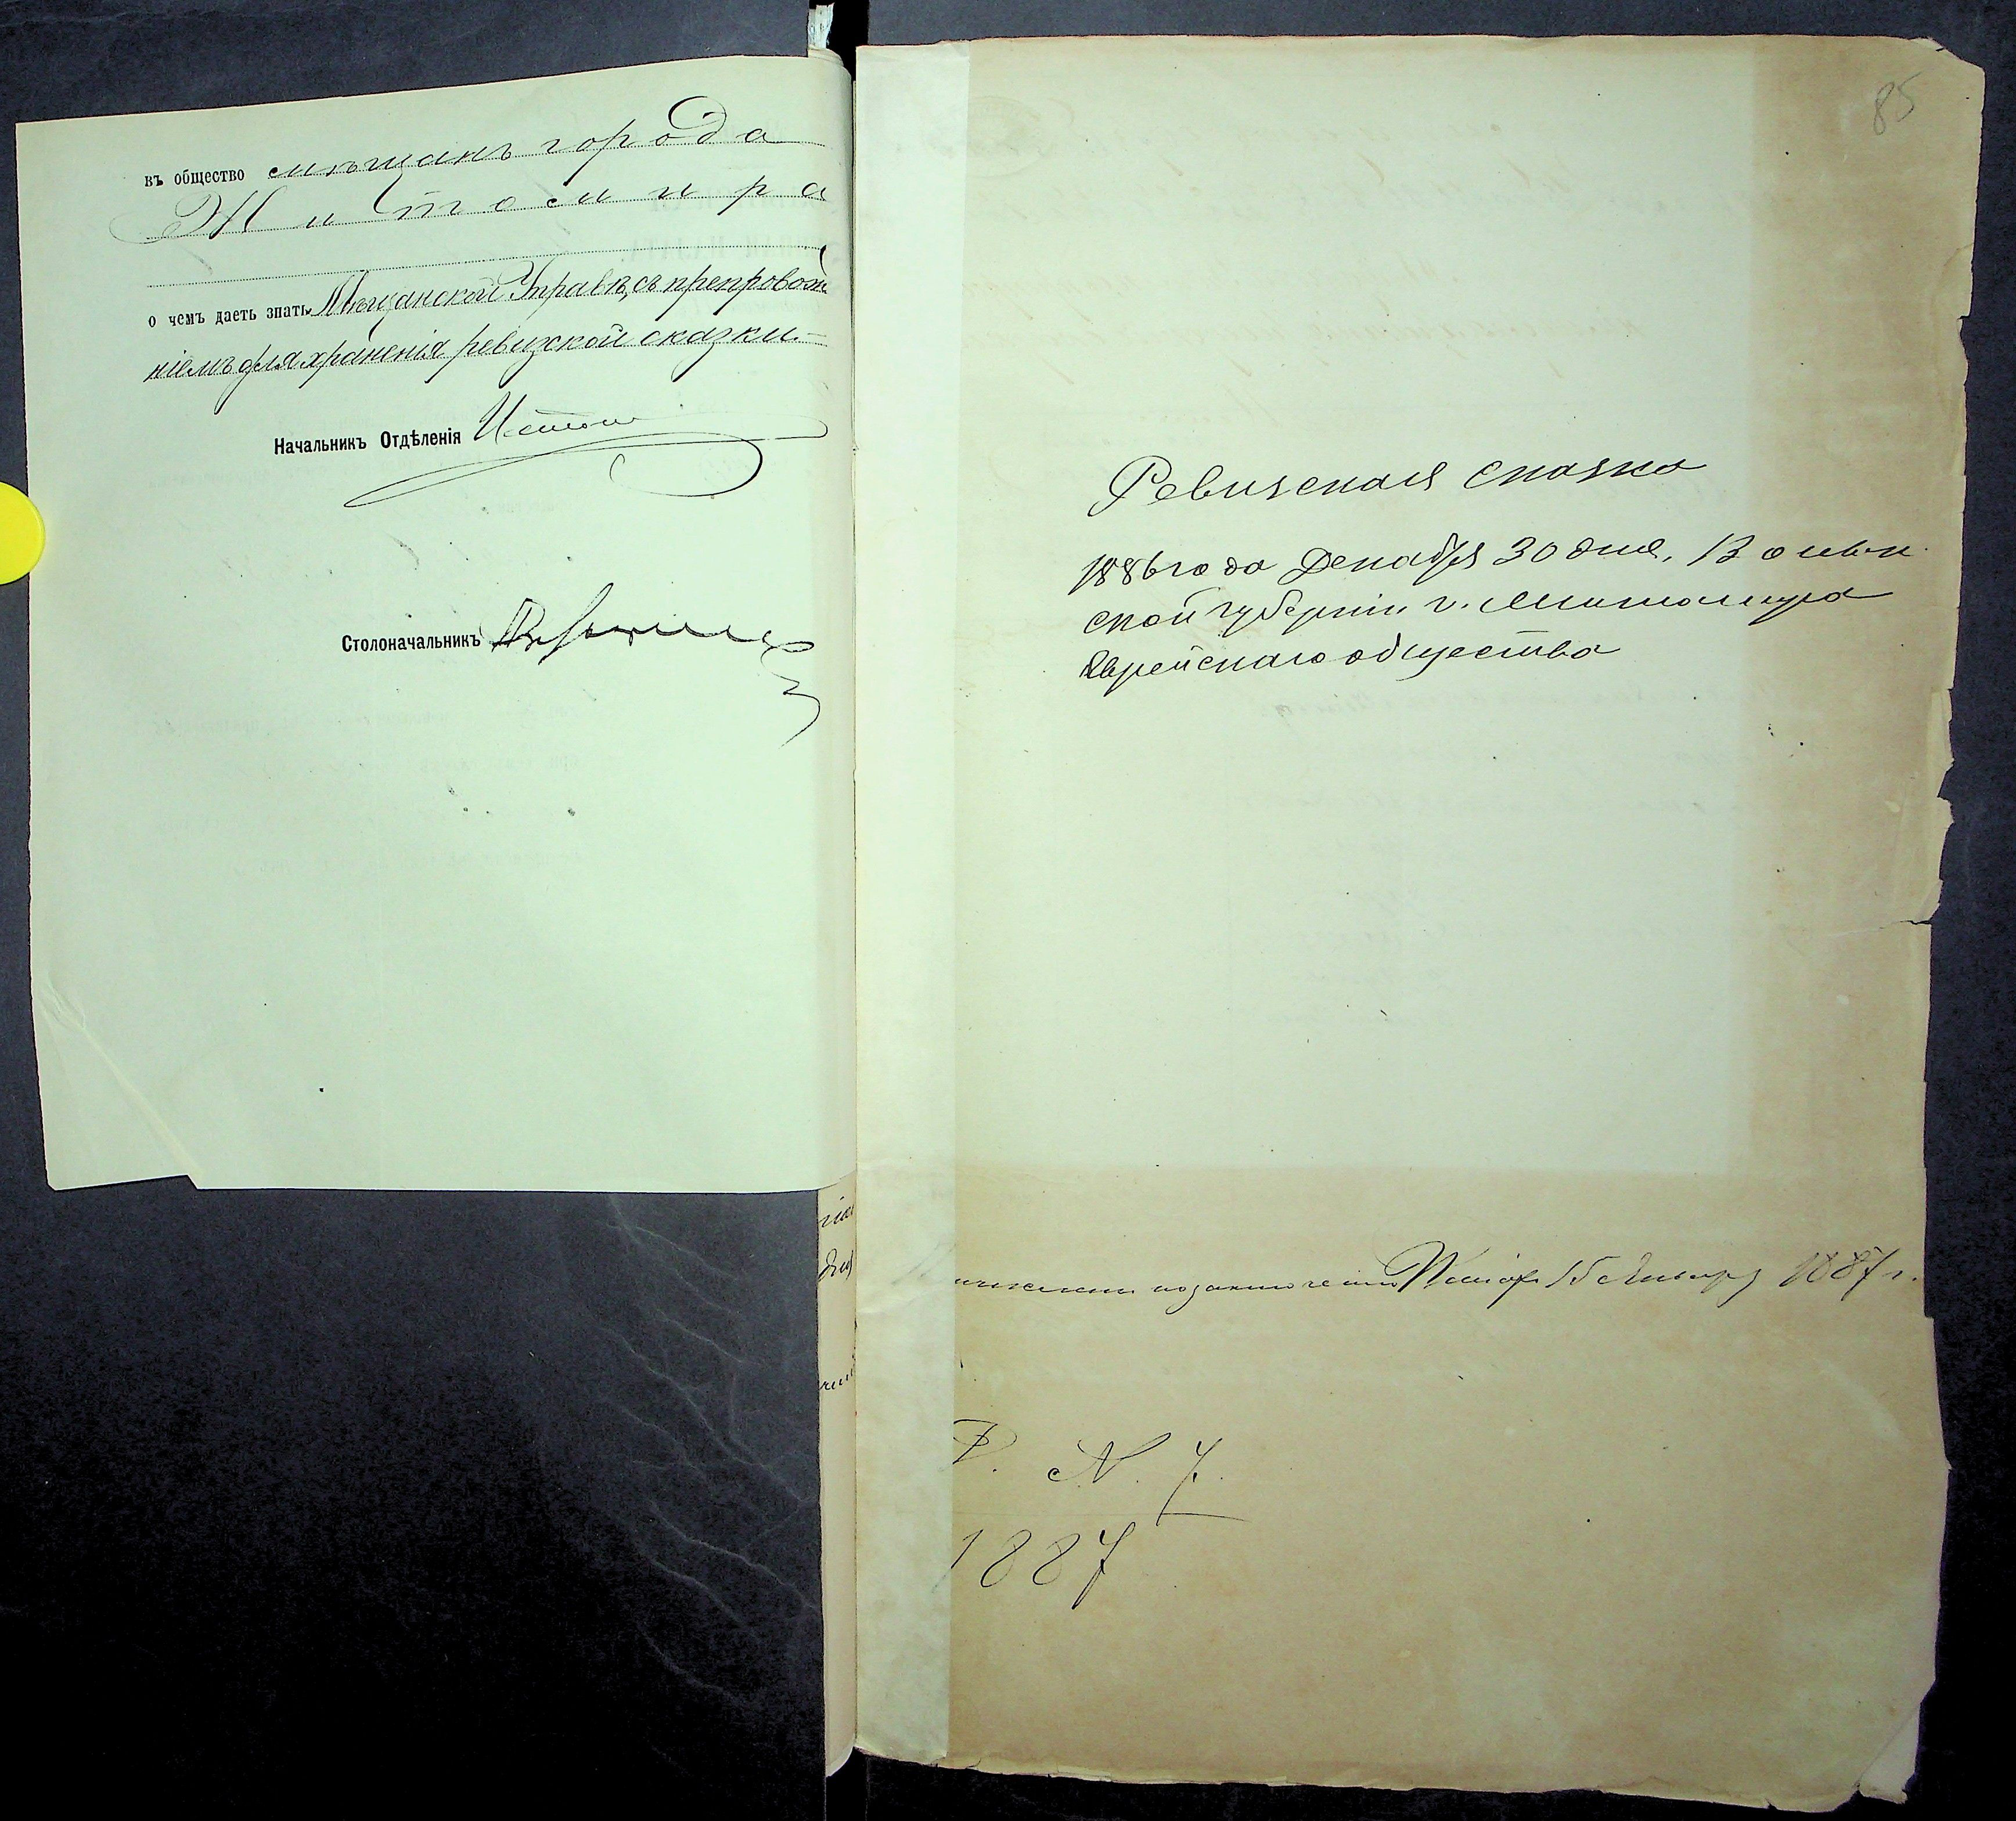 въ общество мѣщанъ города
Житомира
о чемъ даетъ знать Мѣщанской Управѣ, съ препровожде
ніемъ для храненія ревизской сказки.
Начальникъ Отдѣленія
Столоначальникъ
85
Ревизская сказка
1886 года Декабря 30 дня, Волын
ской губерніи г. Житомира
Еврейскаго общества
15 Января 1887 г.
N. 7.
1887